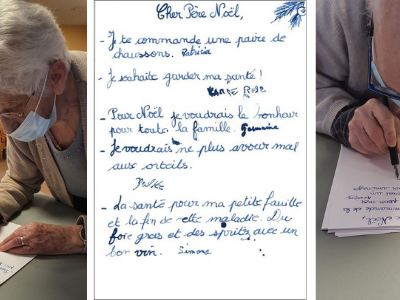 Cher Père Noël,
- Je te commande une paire de
chaussons. Patricia
- Je souhaite garder ma santé !
MARIE ROSE
- Pour Noël je voudrais le bonheur
pour toute la famille. Germaine
- Je voudrais ne plus avoir mal
aux orteils.
- La santé pour ma petite famille
et la fin de cette maladie. Du
foie gras et des spritz avec un
bon vin. Simone